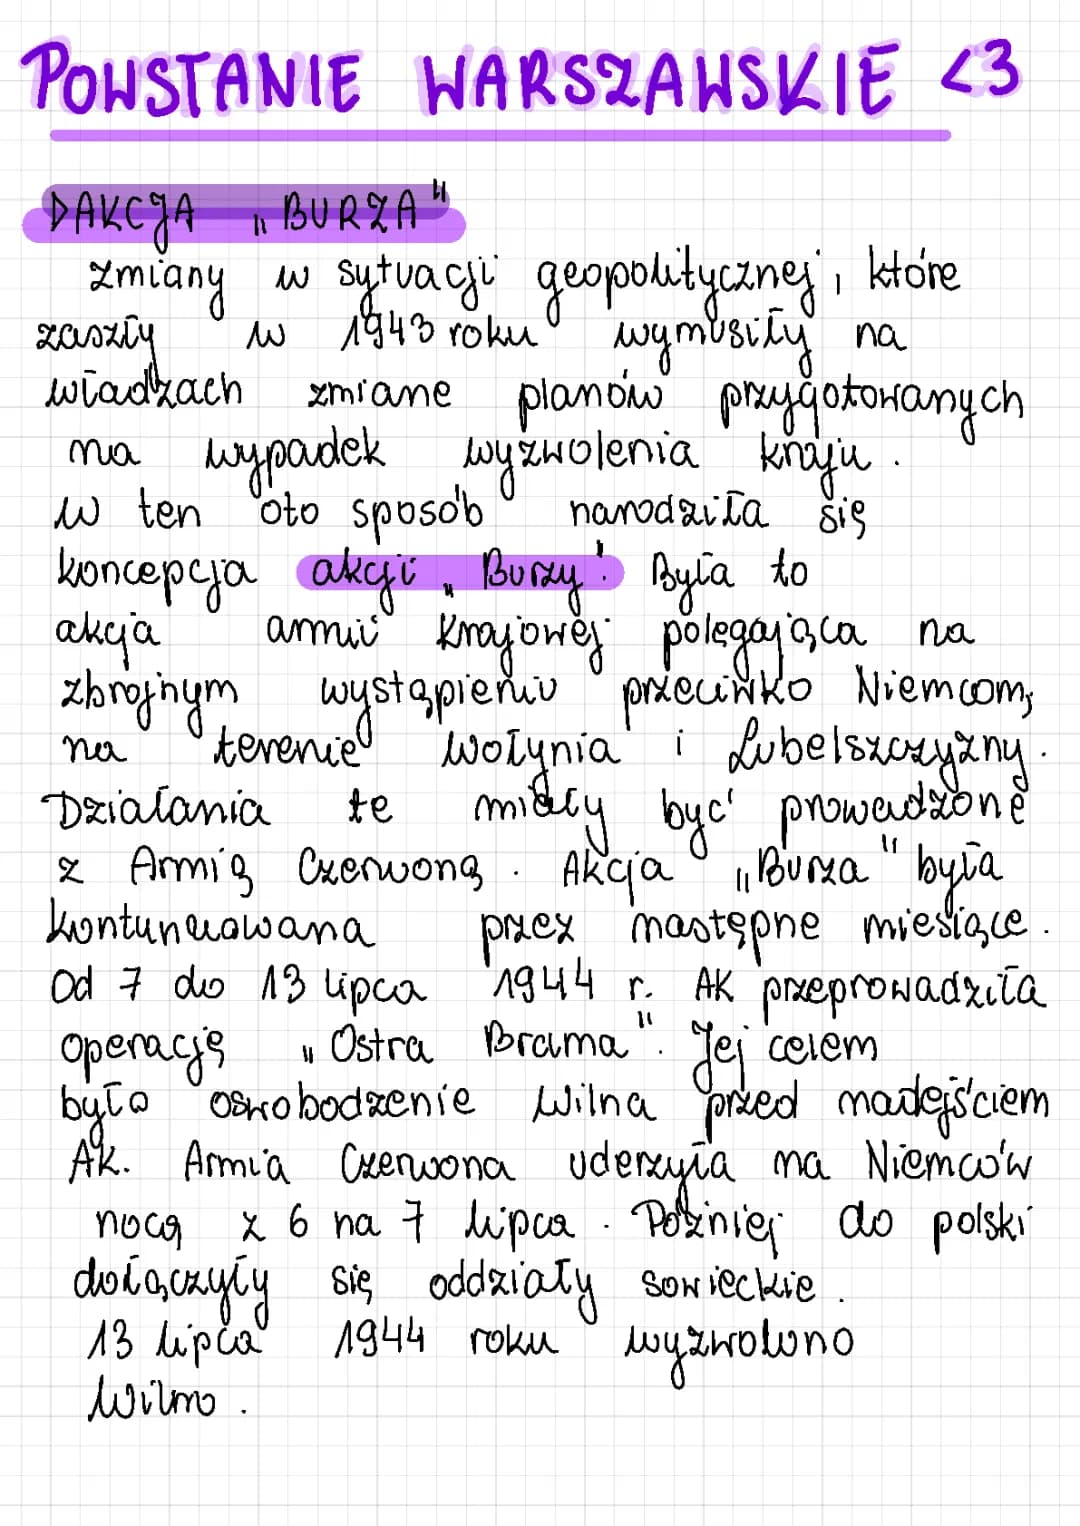 POWSTANIE WARSZAWSKIE <3
DAKCJA „BURZA"
zmiany w sytuacji geopolitycznej, które
zaszły w 1943 roku wymusiły na
władzach zmiane planów przygotowanych
na wypadek wyzwolenia kraju.
W ten oto sposób narodziła się
koncepcja akcji „Burzy". Była to
akcja armii Krajowej polegająca na
zbrojnym wystąpieniu przeciwko Niemcom,
na terenie Wołynia i Lubelszczyzny.
Działania te miały być prowadzone
z Armią Czerwoną. Akcja „Burza" była
kontunuowana przez następne miesiące.
Od 7 do 13 lipca 1944 r. AK przeprowadziła
operację „Ostra Brama". Jej celem
było oswobodzenie Wilna przed nadejściem
AK. Armia Czerwona uderzyła na Niemców
nocą z 6 na 7 lipca. Poźniej do polski
dołączyły się oddziały sowieckie.
13 lipca 1944 roku wyzwolono
Wilno.